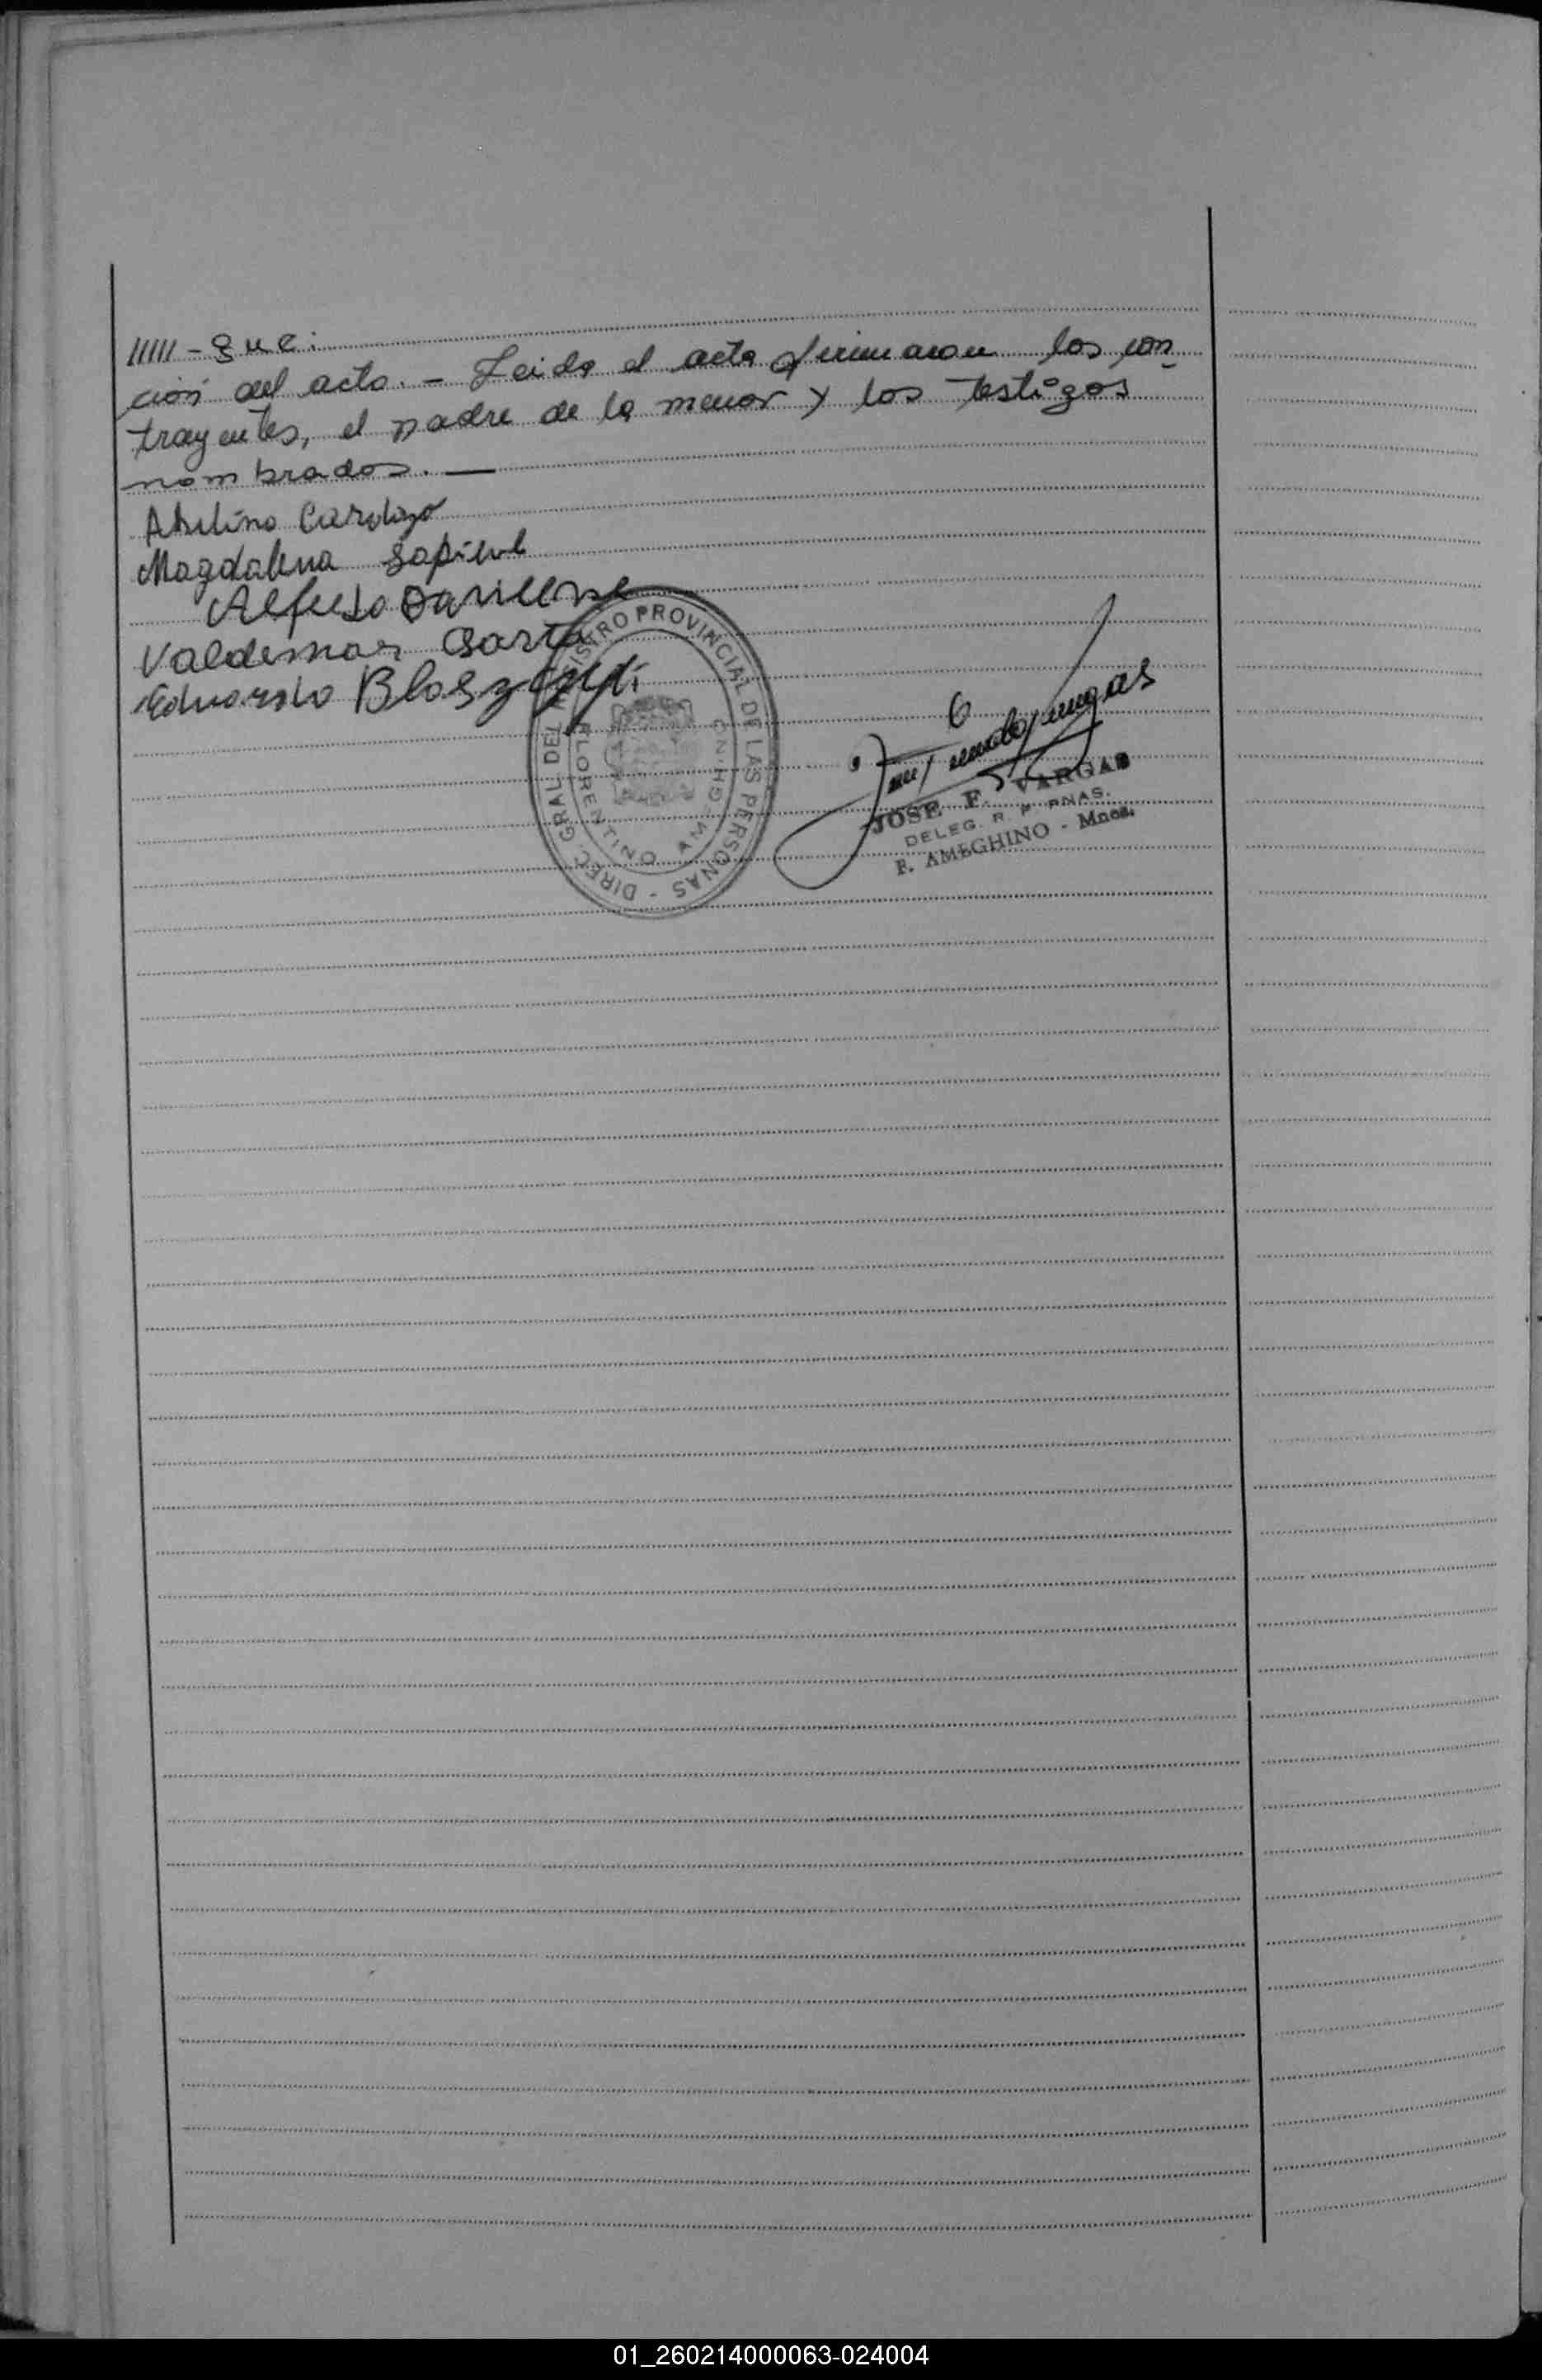 ///// - que:
ción del acto. - Leida el acta firmaron los con_
trayentes, el padre de la menor y los testigos
nombrados. —
Avelino Cardozo
Magdalena
Alfredo
Valdemar
Eduardo
DIREC. GRAL. DEL REGISTRO PROVINCIAL DE LAS PERSONAS -
FLORENTINO AMEGHINO
JOSE F. VARGAS
DELEG. R. P. PNAS.
F. AMEGHINO - Mnes.
01_260214000063-024004